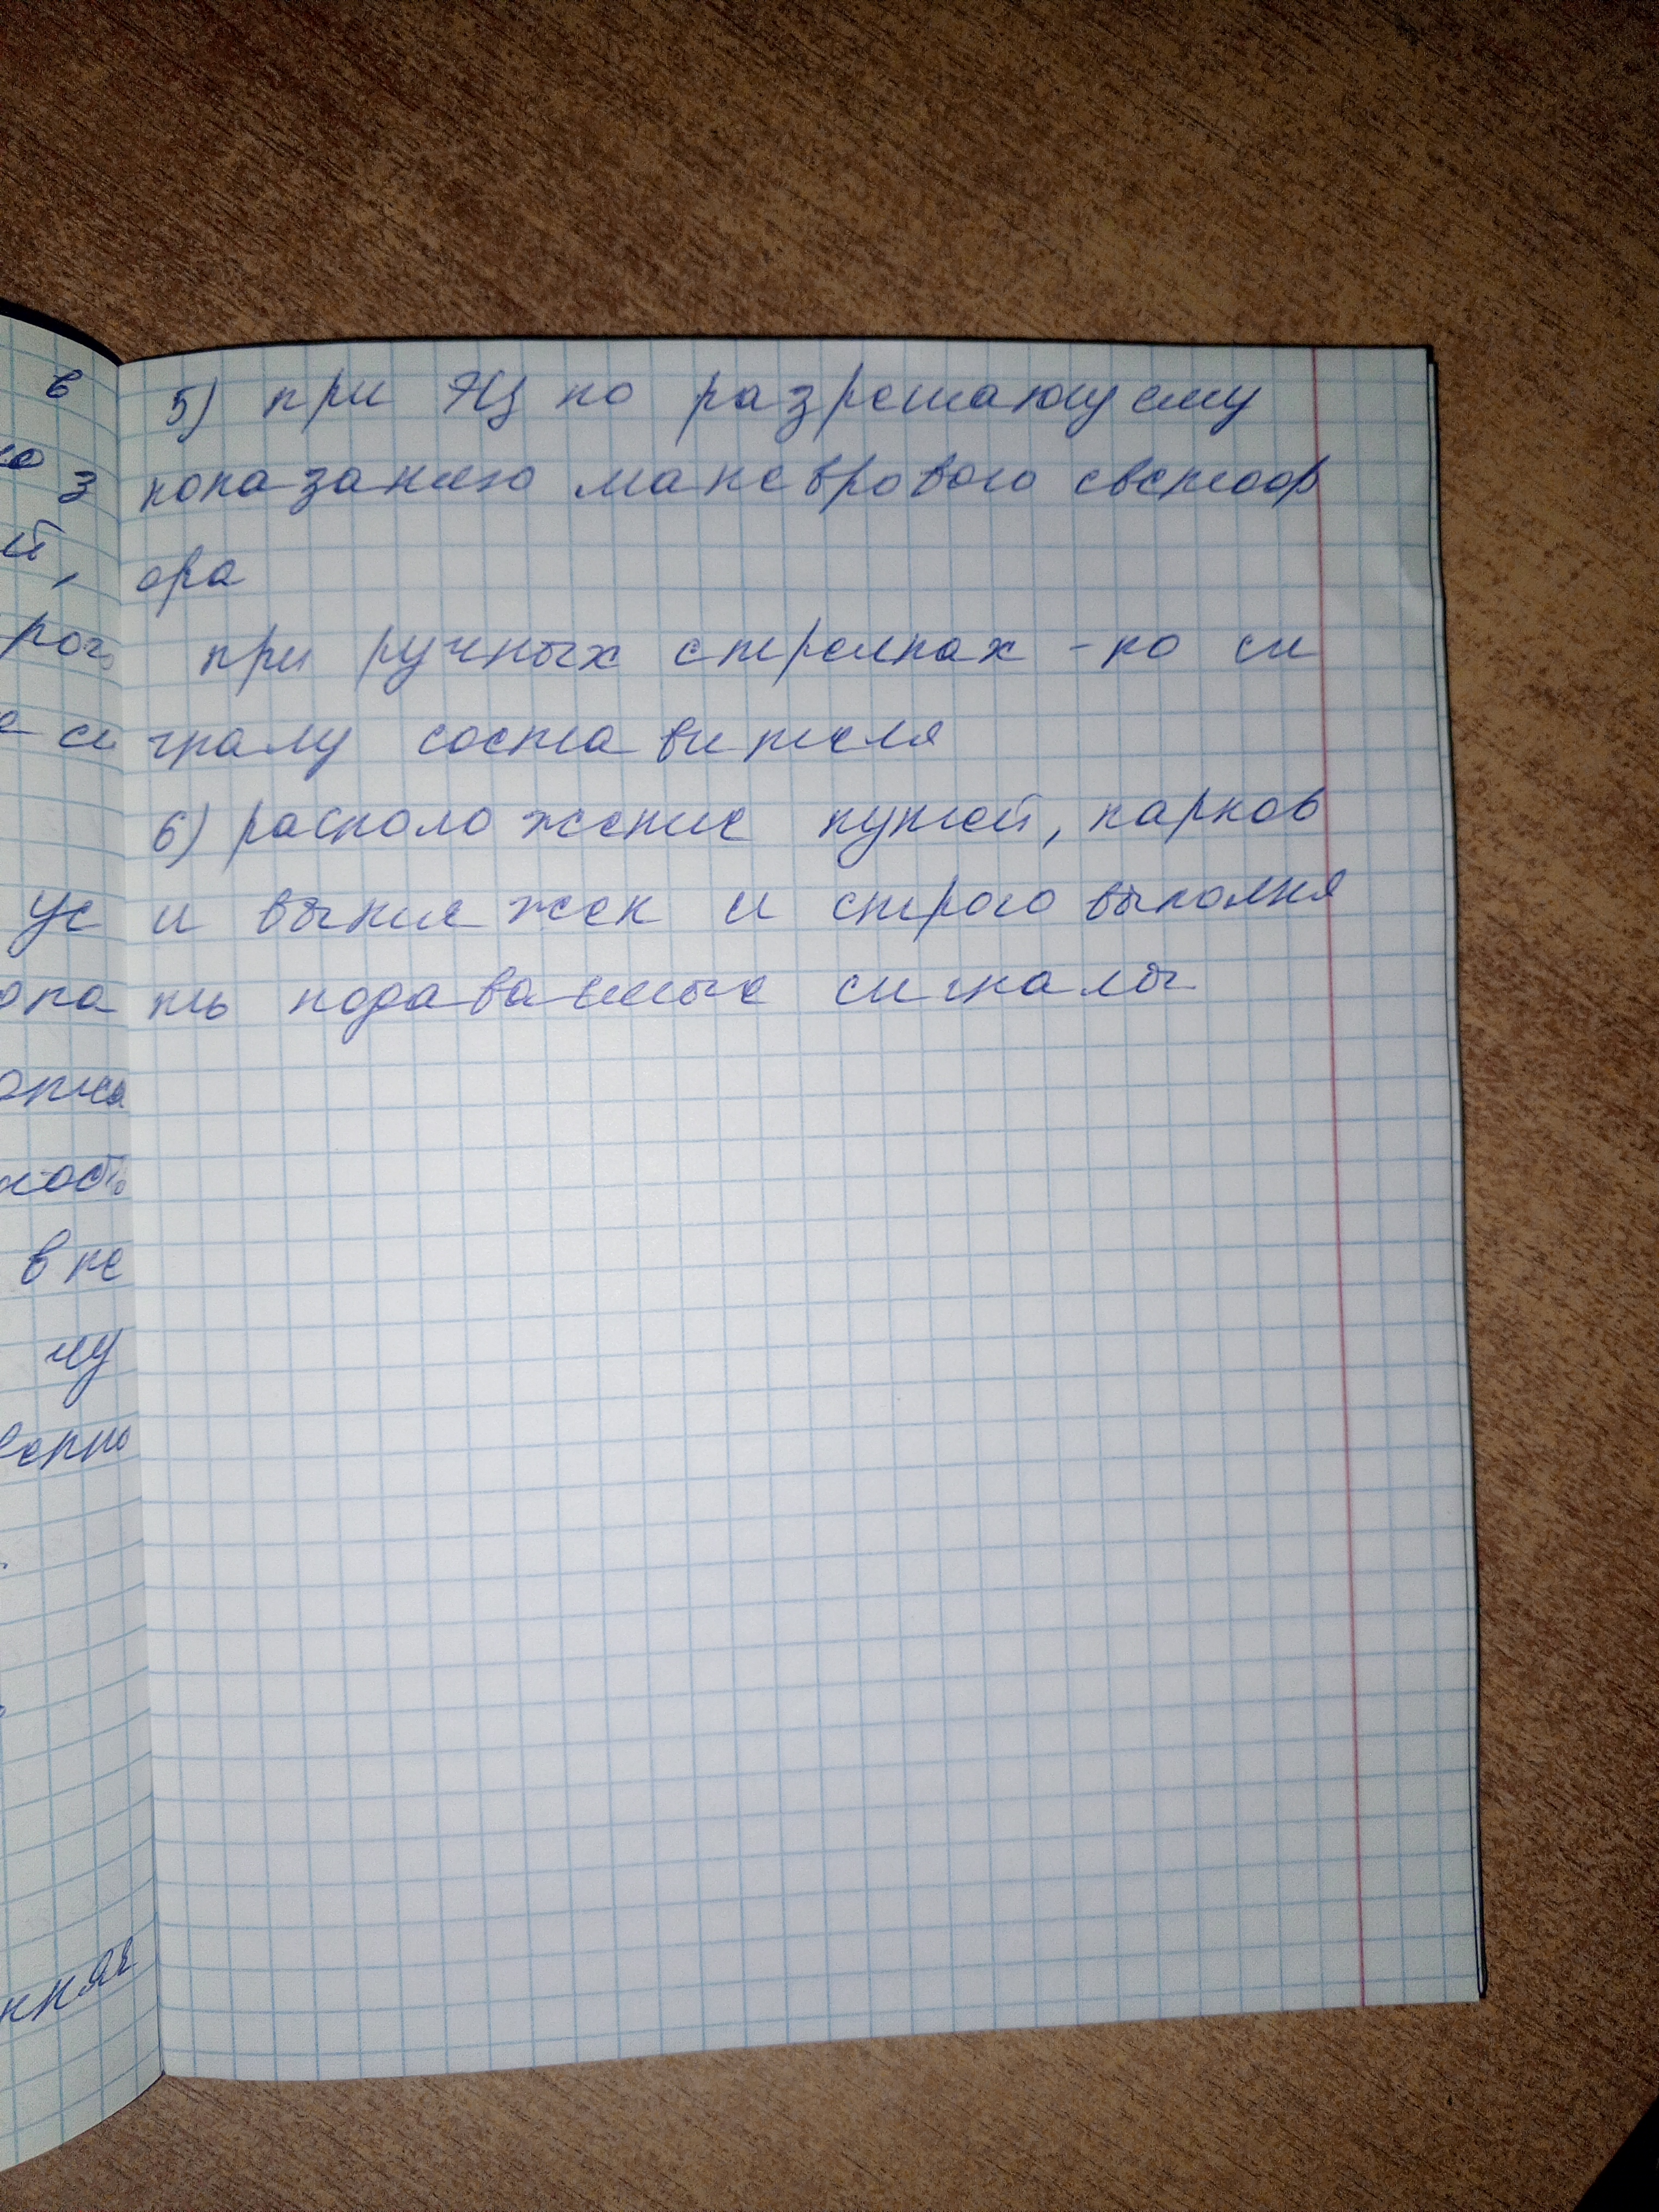 5) при ЭЦ по разрешающему
показанию маневрового светоф
ора
при ручных стрелках - по си
гналу составителя
6) расположение путей, парков
и вытяжек и строго выполня
ть подаваемые сигналы